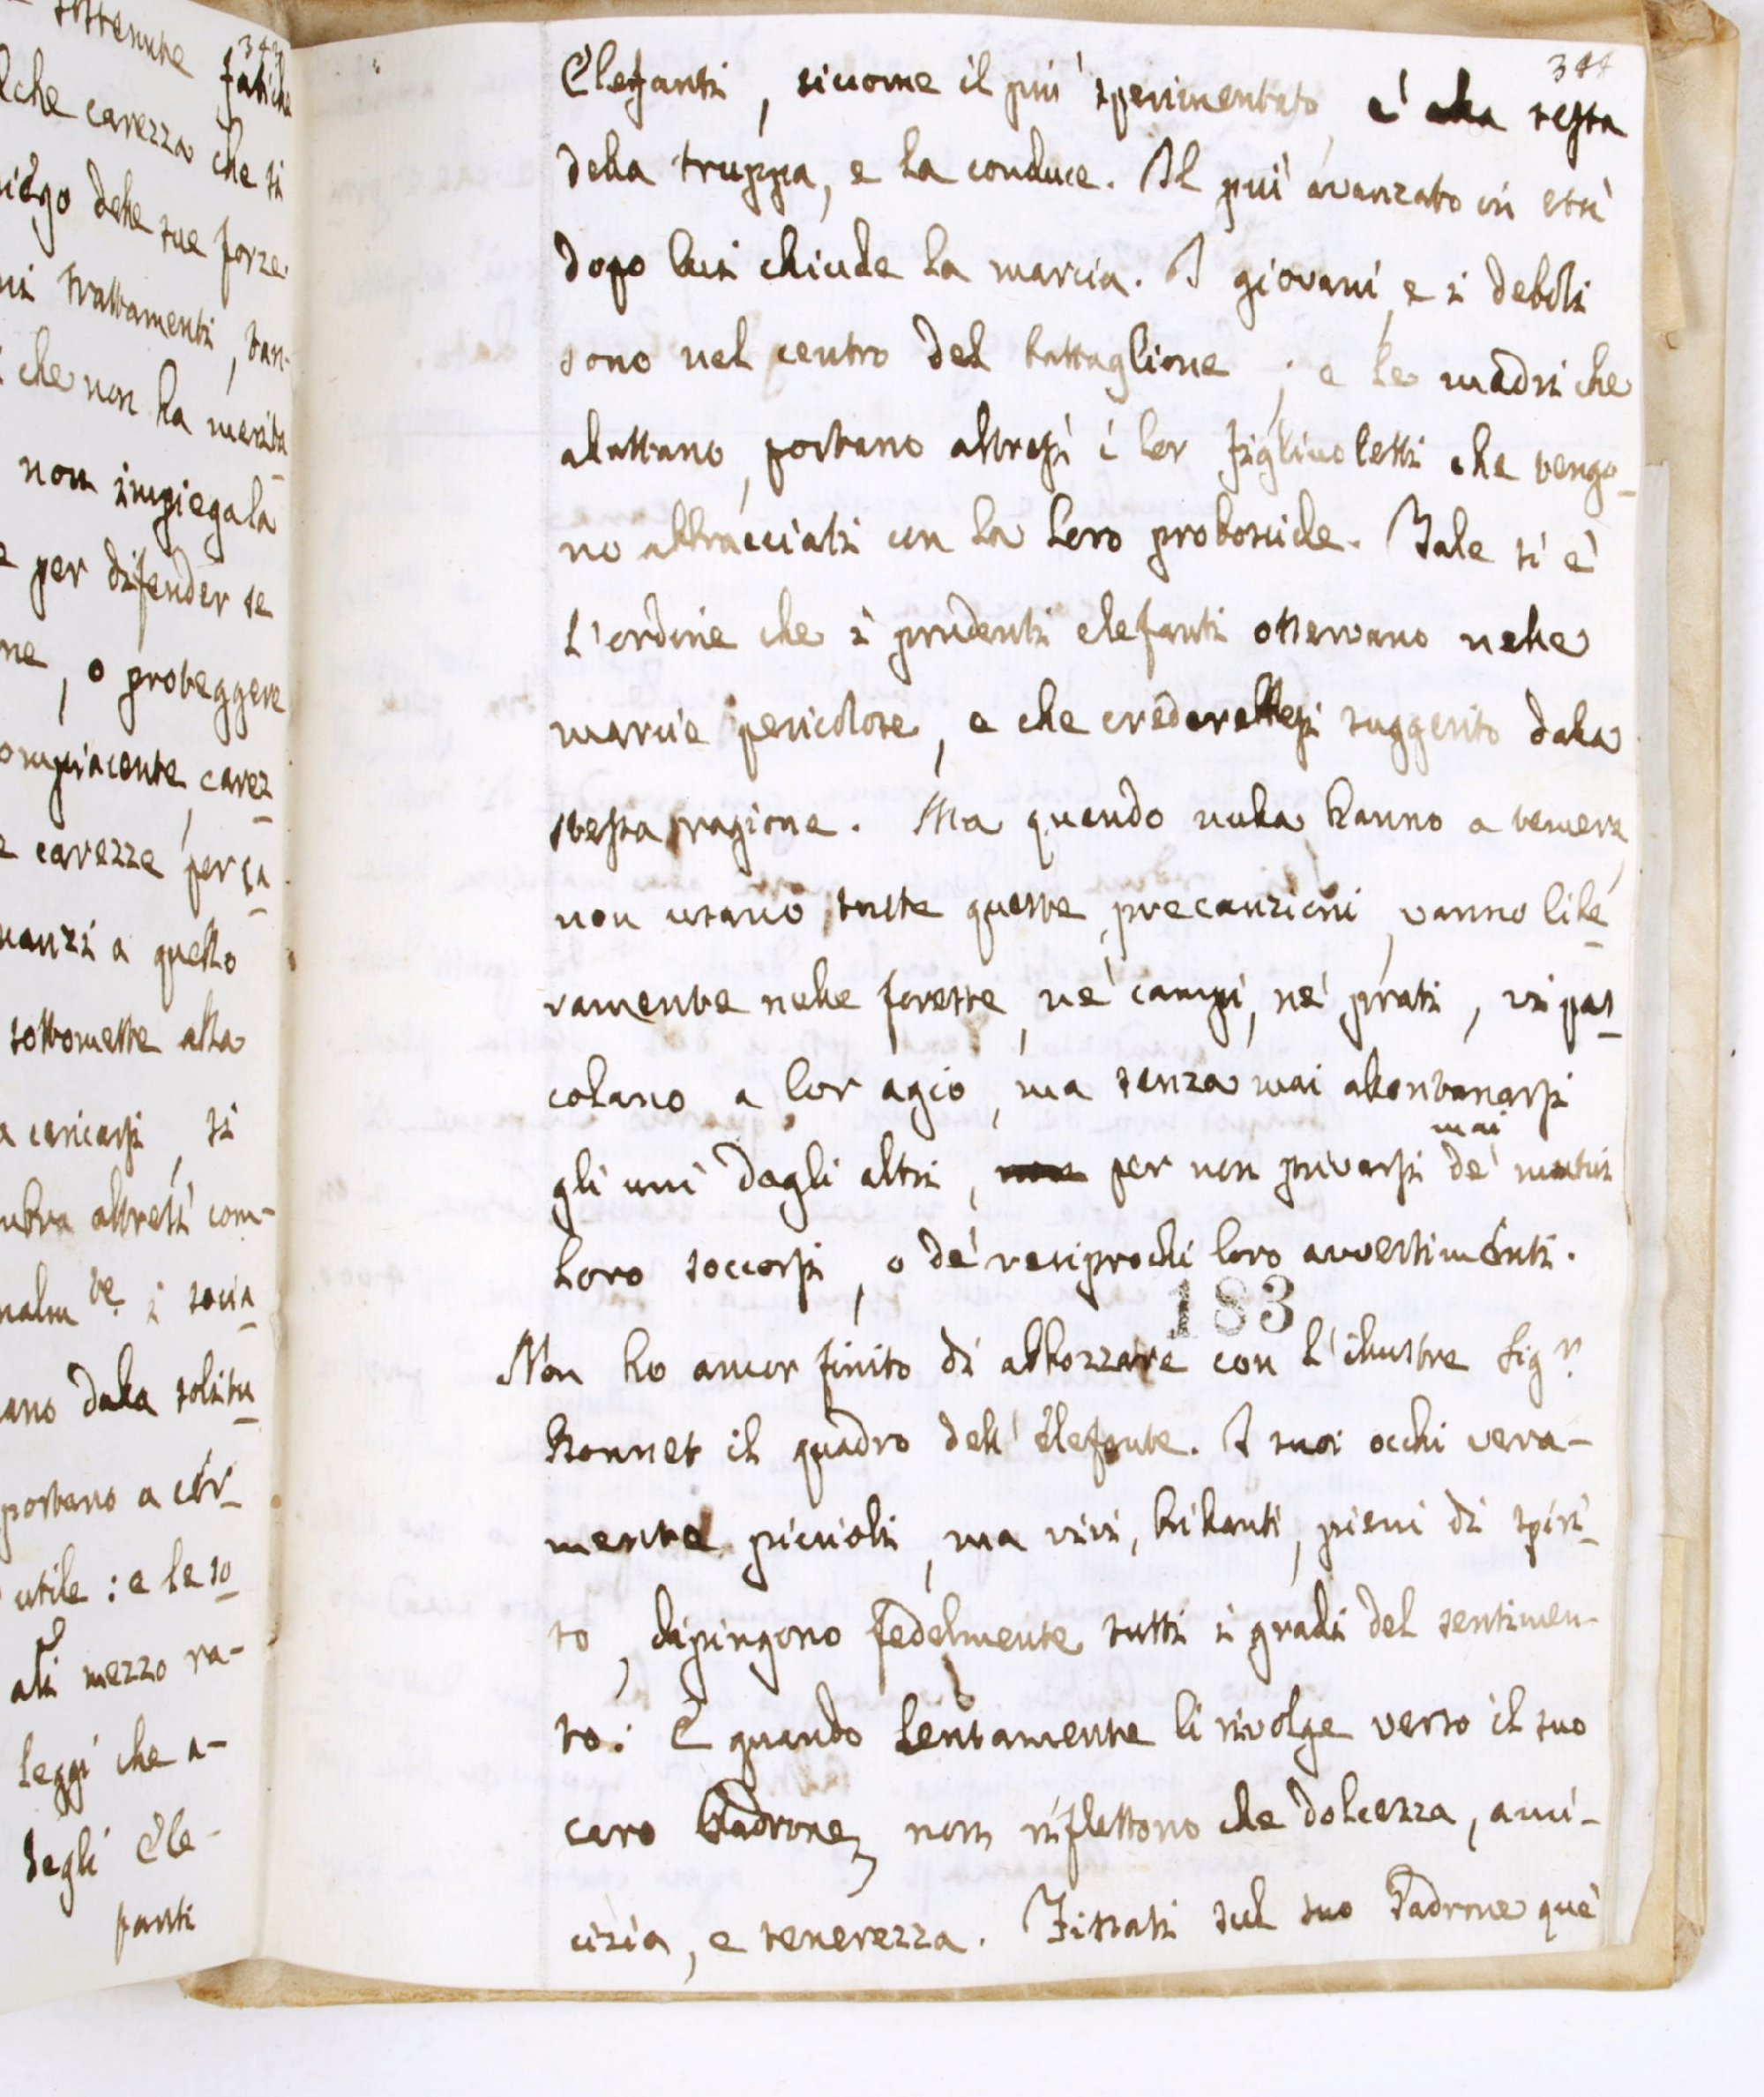 sostenute fatiche
lche carezza che si
piego delle sue forze.
ui trattamenti, van-
che non ha merita
non impiegala
e per difender se
ne, o proteggere
ompiacente, carez
e carezze per ça
nanzi a questo
sottomette alla
a coricarsi, si
ntra altresì com-
nalm.te i socia
ano dalla solitu
portano a cor
utile: e le so
ali mezzo ra-
leggi che a-
degli Ele-
fanti
344
Elefanti, siccome il più sperimentato, è alla testa
della truppa, e la conduce. Il più avanzato in età
dopo lui chiude la marcia. I giovani, e i deboli
sono nel centro del battaglione; e le madri che
alattano, portano altresì i lor figliuoletti che vengo
no abbracciati con la loro proboscide. Tale si è
l'ordine che i prudenti elefanti osservano nelle
marcie pericolose, e che crederebbesi suggerito dalla
stessa ragione. Ma quando nulla hanno a temere,
non usano tutte queste precauzioni, vanno libe
ramente nelle foreste, ne' campi, ne' prati, vi pas
colano a lor agio, ma senza mai allontanarsi
mai
gli uni dagli altri, non per non privarsi de' mutui
loro soccorsi, o de' reciprochi loro avvertimenti.
183
Non ho ancor finito di abbozzare con l'illustre Sig.r
Bonnet il quadro dell'Elefante. I suoi occhi vera-
mente piccioli, ma vivi, brillanti, pieni di spiri-
to, dipingono fedelmente tutti i gradi del sentimen-
to: E quando lentamente li rivolge verso il suo
caro Padrone, non riflettono che dolcezza, ami-
cizia, e tenerezza. Fissati sul suo Padrone que'